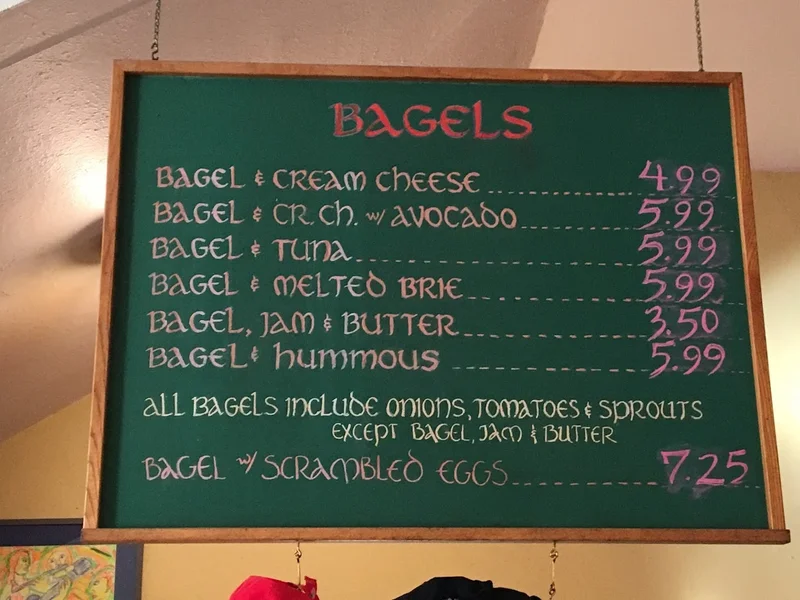 BAGELS
BAGEL & CREAM CHEESE 4.99
BAGEL & CR. CH. w/ AVOCADO 5.99
BAGEL & TUNA 5.99
BAGEL & MELTED BRIE 5.99
BAGEL, JAM & BUTTER 3.50
BAGEL & HUMMOUS 5.99
ALL BAGELS INCLUDE ONIONS, TOMATOES & SPROUTS
EXCEPT BAGEL, JAM & BUTTER
BAGEL w/ SCRAMBLED EGGS 7.25